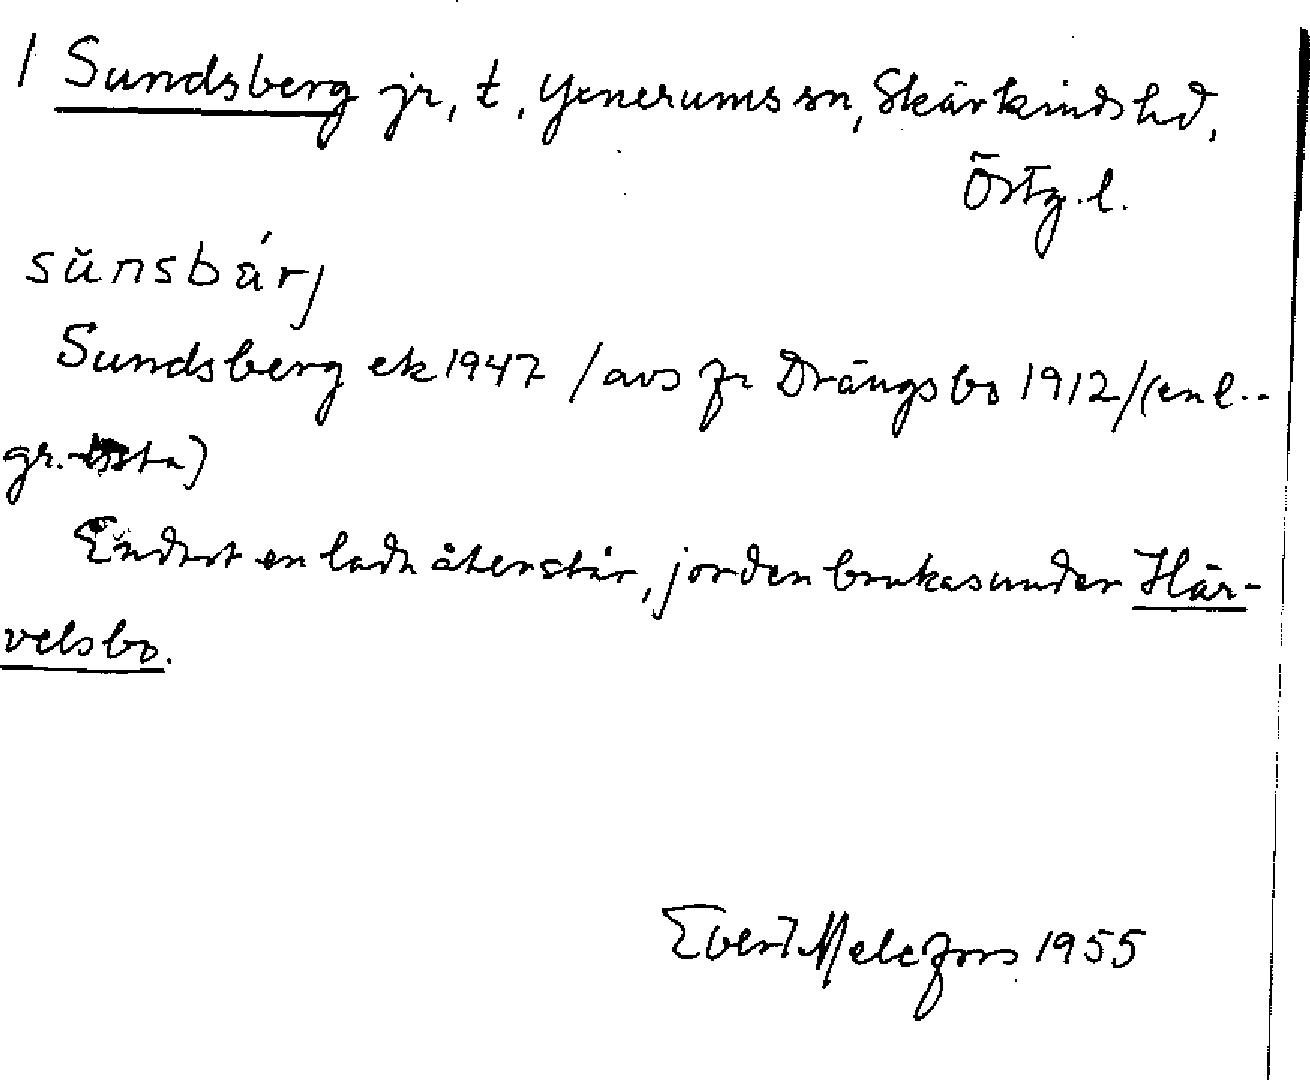 / Sundsberg jr, t. Yxnerums sn, Skärkinds hd,
Östg. l.
sŭnsbárj
Sundsberg ek 1947 / avs fr Drängsbo 1912/(enl..
gr.-lista)
Endast en lada återstår, jorden brukas under Här-
velsbo.
Evert Melefors 1955